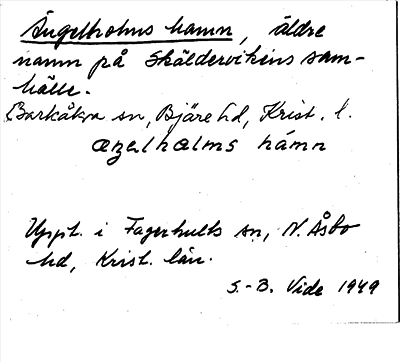 Ängelholms hamn, äldre
namn på Skäldervikens sam-
hälle.
Barkåkra sn, Bjäre hd, Krist. l.
æŋəlhælms hámn
Uppt. i Fagerhults sn, N. Åsbo
hd, Krist. län.
S.-B. Vide 1949